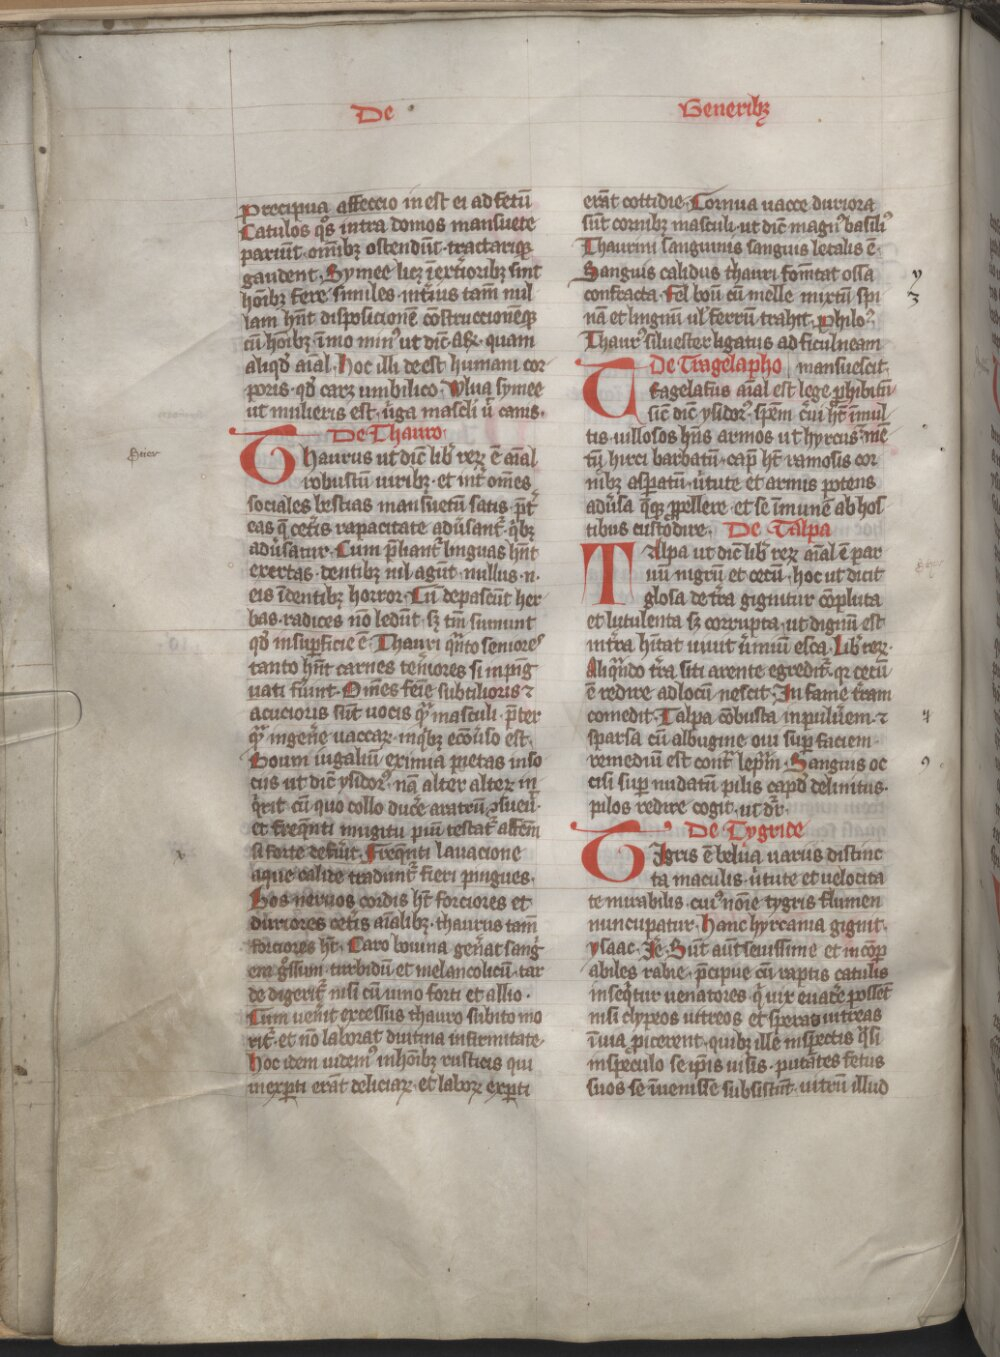 De
Generibꝫ
Precipua affectio inest ei ad fetū
Catulos qͦs intra domos mansuete
pariūt· oīnibꝫ ostendūt· tractariqꝫ
gaudent· Symee licꝫ ī ext̾ioribꝫ sint
hoībꝫ fere similes· int̾ius tam̄ nul
lam hn̄t disposicionē 
cū hoībꝫ īmo min᷒ ut dic̄ quam
aliqd̄ aīal· Hoc illi deest humani cor
poris· qd̄ caret umbilico· Vlua symee
ut mulieris est· u̾ga mascli ū canis·
De Thauro
Thaurus ut dic̄ lib̾ reꝝ ē aīal
robustū uiribꝫ· et int̾ om̄es
sociales bestias mansuetū satis· p̄t̾
eas q̄ cet̾is rapacitate adūsant̾· qͥbꝫ
adūsatur· Cum p̄liant̾ linguas hn̄t
exertas· dentibꝫ nil agūt· nullus· n·
eis ī dentibꝫ horror· Cū depascūt her
bas· radices nō ledūt· sꝫ tm̄ sumunt
qd̄ in suꝑficie ē· Thauri qͣnto seniores
tanto hn̄t carnes ten̾iores si inpīg
uati fūint· Om̄es feīe subtilioris ⁊
acucioris sūt uocis qͣ masculi· p̄ter
qͣ in gen̾e uaccaꝝ· in qͥbꝫ ecōuso est·
Boum iugaliū eximia pietas in so
cius ut dic̄ ysidor᷒· nā alter alteꝝ in
qͥrit cū quo collo duc̾e aratrū ꝯsueū·
et freqn̄ti mugitu piū testat̾ affc̄m
si forte defūit· Freqn̄ti lauacione
aque calide tradunt̾ fieri pingues·
Bos neruos cordis hꝫ forciores et
duriores cet̾is aīalibꝫ· thaurus tam̄
forciores hꝫ· Caro bouina gen̾at sang̾
enꝫ gͦssum· turbidū et melancolicū· tar
de digerit̾ nisi cū uino forti et allio·
Cum uen̾it excessus thauro subito mo
rit̾· et nō laborat diutina infirmitate·
Hoc idem uidem᷒ in hoībꝫ rusticis qui
inexꝑti erāt deliciaꝝ· et laboꝝ exꝑti
erāt cottidie· Cornua uacce duriora
sūt cornibꝫ masculi· ut dic̄ magn᷒ basili᷒
Thaurini sanguinis sanguis letalis ē·
Sanguis calidus thauri fom̄tat ossa
confracta· Fel bouī cū melle mixtū spi
nā et lingnū ul̾ ferrū trahit· Philo᷒·
Thaur᷒ siluester ligatus ad ficulneam
mansuescit·
De Tragelapho
Tragelafus aīal est lege ꝓhibitū
sic̄ dic̄ ysidor᷒· spēm ceruī hꝫ s̄imul
tis· uillosos hn̄s armos ut hyrcus· mē
tū hirci barbatū· cap̄ hꝫ ramosis cor
nibꝫ asꝑatū· ūtute et armis potens
adūsa qͤqꝫ ꝓpellere· et se īmunē ab hos
tibus custodire·
De Talpa
Talpa ut dic̄ lib̾ reꝝ aīal ē par
uū nigrū et cecū· hoc ut dicit
glosa de t̾ra gignitur cōpluta
et lutulenta sꝫ corrupta· ut dignū est
int̾ra hītat uiuit u̾miū esca· Lib̾ reꝝ·
Aliqͣndo t̾ra siti arente egredit̾· qꝛ cecū
ē redire ad locū nescit· In fame t̾ram
comedit· Talpa cōbusta in pulu̾em· ⁊
sparsa cū albugine oui suꝑ faciem·
remediū est cont̾ lep̄m· Sanguis oc
cisi suꝑ nudatū pilis capd̄ delinitus·
pilos redire cogit· ut dr̄·
De Tygride
Tigris ē belua uariis distinc
ta maculis· ūtute et uelocita
te mirabilis· cui᷒ noīe tygris flumen
nuncupatur· Hanc hyrcania gignit·
ysaac· Sūt aūt seuissime et incōp
abiles rabie· p̄cipue cū raptis catulis
inseqͥtur uenatores qͥ uix euad̾e possēt
nisi clypeos uitreos et speras uitreas
ī uia ꝓicerent· quibꝫ ille inspectis qͣsi
in speculo se ip̄is uisis· putātes fetus
suos se īuenisse subsistūt· uitrū illud
Stier
y
3
4
9